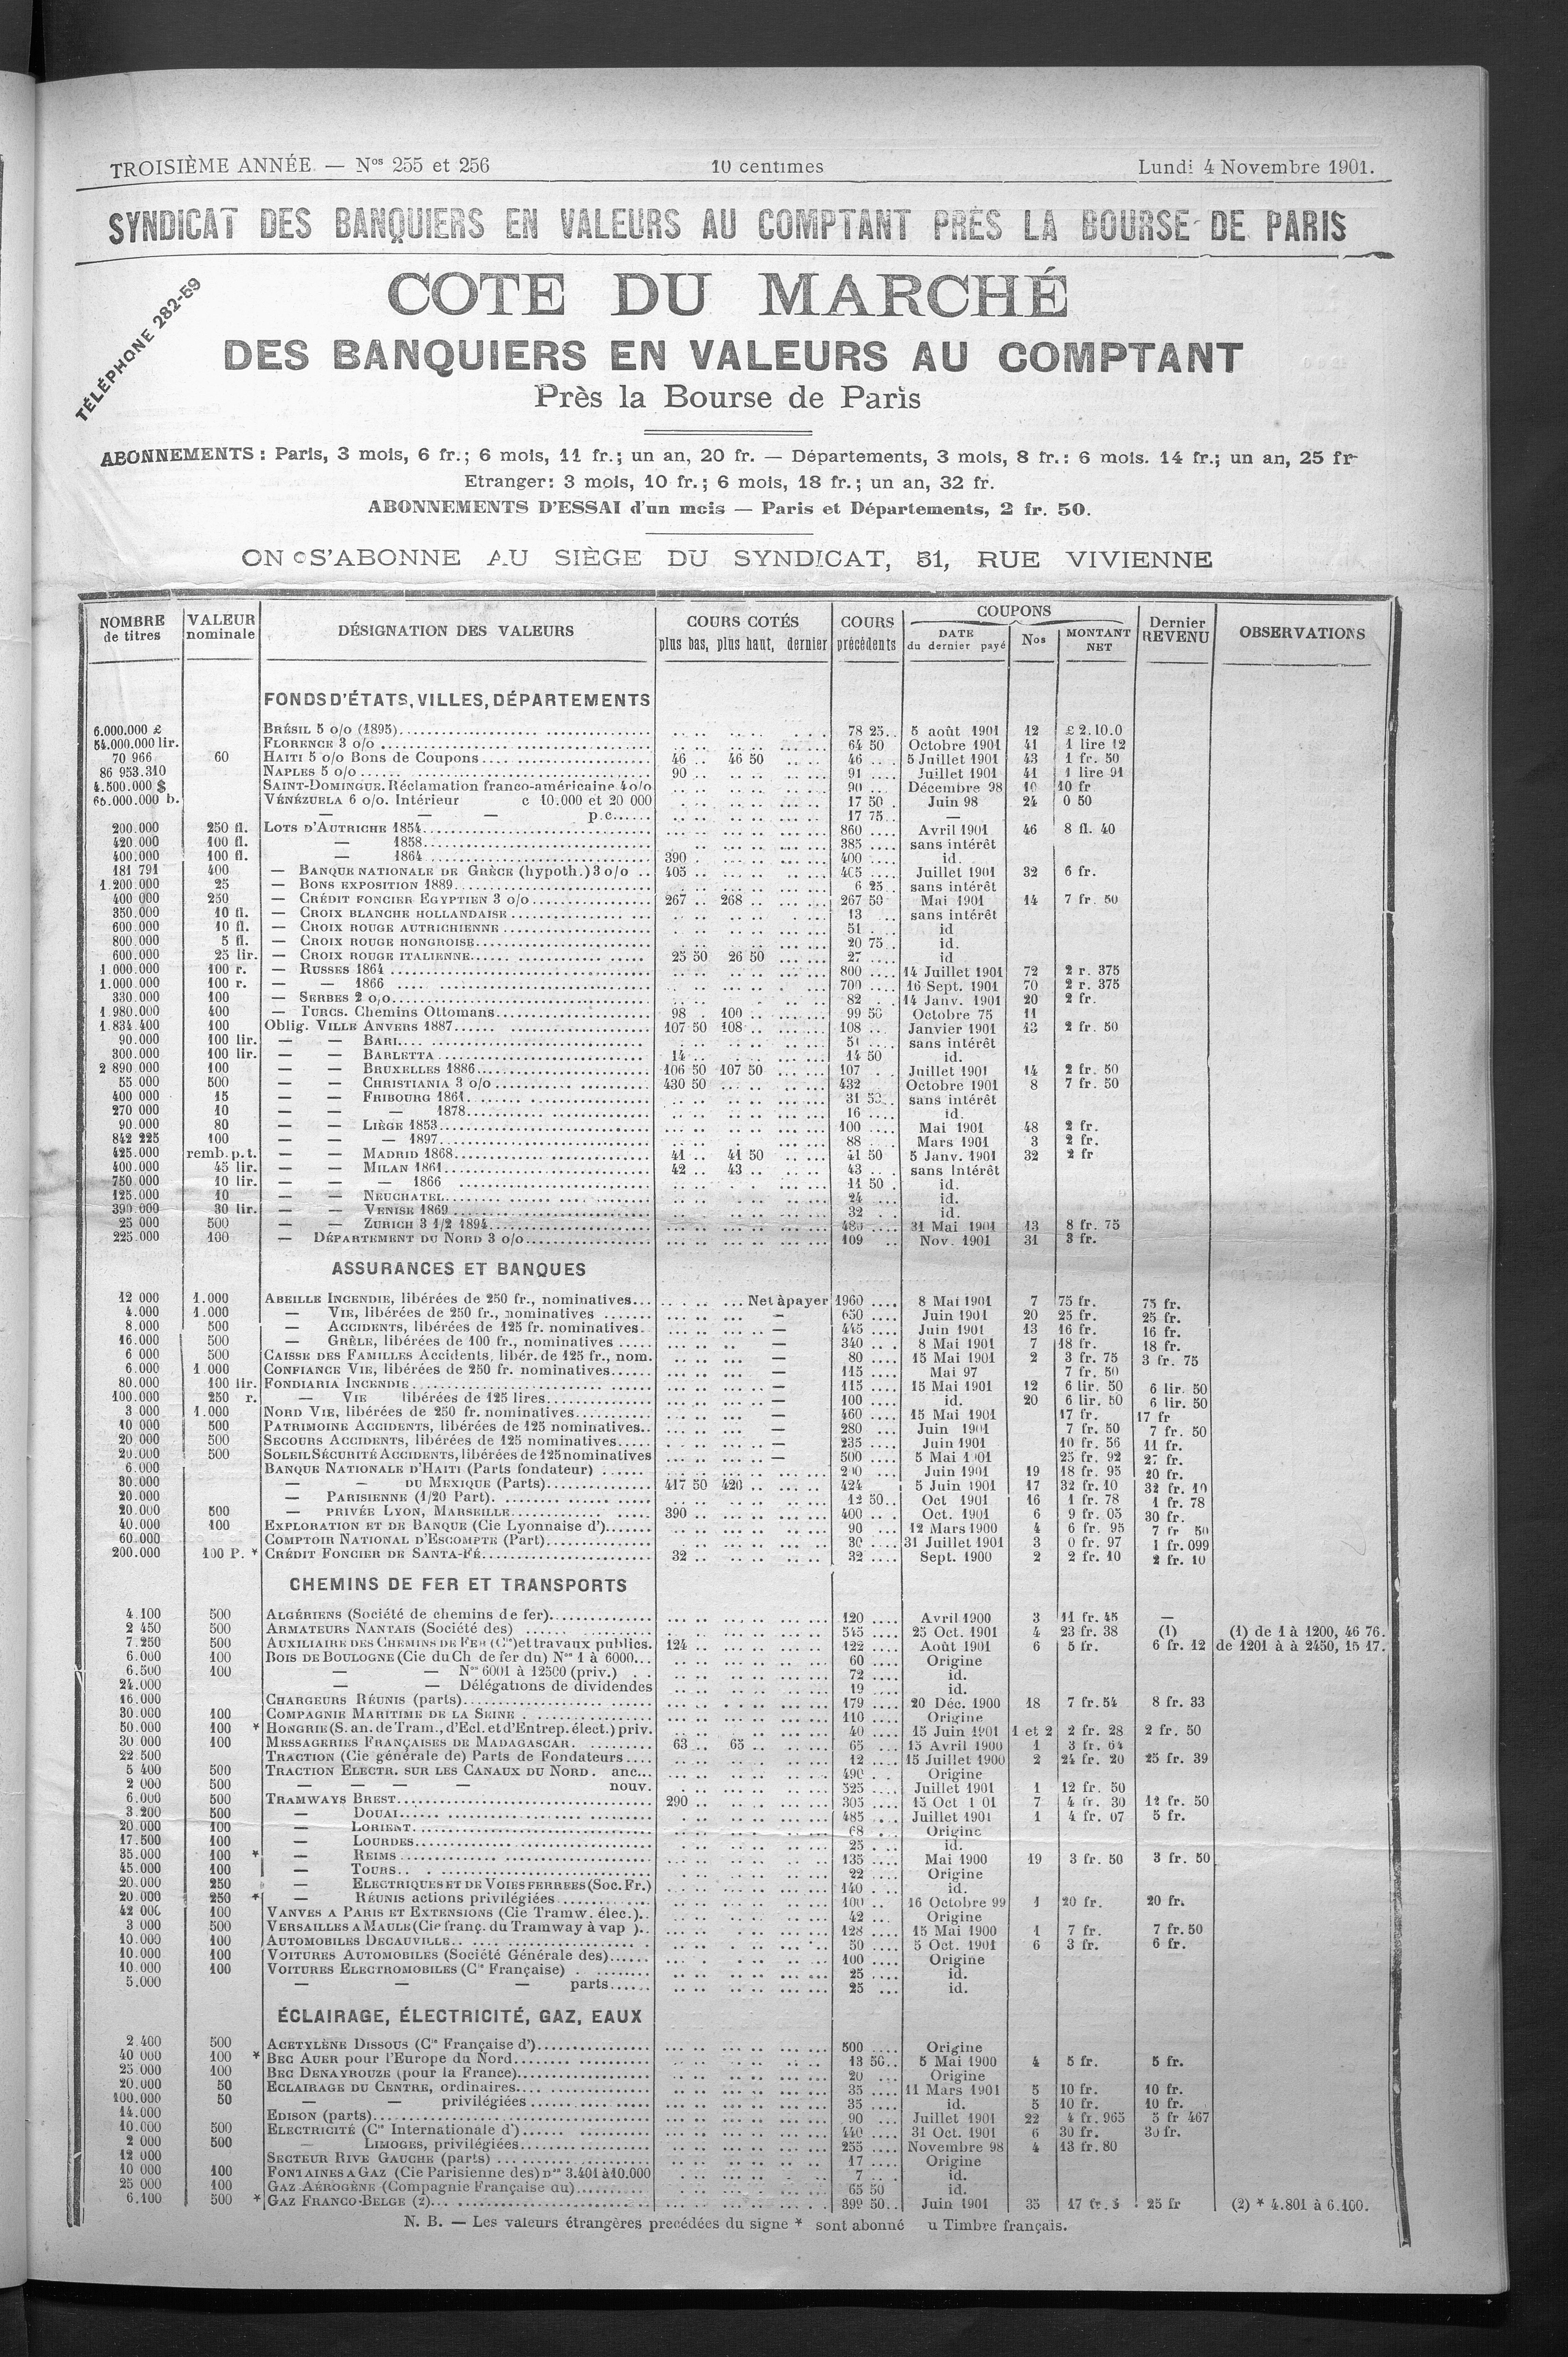 TROISIÈME ANNÉE. — Nos 255 et 256 10 centimes Lundi 4 Novembre 1901.
SYNDICAT DES BANQUIERS EN VALEURS AU COMPTANT PRÈS LA BOURSE DE PARIS
TÉLÉPHONE 282-59
COTE DU MARCHÉ
DES BANQUIERS EN VALEURS AU COMPTANT
Près la Bourse de Paris
ABONNEMENTS : Paris, 3 mois, 6 fr.; 6 mois, 11 fr.; un an, 20 fr. — Départements, 3 mois, 8 fr.: 6 mois. 14 fr.; un an, 25 fr
Etranger: 3 mois, 10 fr.; 6 mois, 18 fr.; un an, 32 fr.
ABONNEMENTS D'ESSAI d'un mois — Paris et Départements, 2 fr. 50.
ON S'ABONNE AU SIÈGE DU SYNDICAT, 31, RUE VIVIENNE
NOMBRE de titres VALEUR nominale DÉSIGNATION DES VALEURS COURS COTÉS plus bas, plus haut, dernier COURS précédents COUPONS DATE du dernier payé Nos MONTANT NET Dernier REVENU OBSERVATIONS
FONDS D'ÉTATS, VILLES, DÉPARTEMENTS
6.000.000 £ BRÉSIL 5 o/o (1895) 78 25 5 août 1901 12 £ 2.10.0
54.000.000 lir. FLORENCE 3 o/o 64 50 Octobre 1901 41 1 lire 12
70 966 60 HAITI 5 o/o Bons de Coupons 46 46 50 46 5 Juillet 1901 43 1 fr. 50
86 953.310 NAPLES 5 o/o 90 91 Juillet 1901 41 1 lire 91
4.500.000 $ SAINT-DOMINGUE. Réclamation franco-américaine 4 o/o 90 Décembre 98 10 10 fr
65.000.000 b. VÉNÉZUELA 6 o/o. Intérieur c 10.000 et 20 000 17 50 Juin 98 24 0 50
— — — p.c. 17 75 —
200.000 250 fl. LOTS D'AUTRICHE 1854 860 Avril 1901 46 8 fl. 40
420.000 100 fl. — 1858 385 sans intérêt
400.000 100 fl. — 1864 390 400 id.
181 791 400 — BANQUE NATIONALE DE GRÈCE (hypoth.) 3 o/o 405 405 Juillet 1901 32 6 fr.
1.200.000 25 — BONS EXPOSITION 1889 6 25 sans intérêt
400 000 250 — CRÉDIT FONCIER EGYPTIEN 3 o/o 267 268 267 50 Mai 1901 14 7 fr. 50
350.000 10 fl. — CROIX BLANCHE HOLLANDAISE 13 sans intérêt
600.000 10 fl. — CROIX ROUGE AUTRICHIENNE 51 id
800.000 5 fl. — CROIX ROUGE HONGROISE 20 75 id.
600.000 25 lir. — CROIX ROUGE ITALIENNE 25 50 26 50 27 id
1 000.000 100 r. — RUSSES 1864 800 14 Juillet 1901 72 2 r. 375
1.000.000 100 r. — — 1866 700 16 Sept. 1901 70 2 r. 375
330.000 100 — SERBES 2 o/o 82 14 Janv. 1901 20 2 fr.
1.980.000 400 — TURCS. Chemins Ottomans 98 100 99 50 Octobre 75 11
1.834.400 100 Oblig. VILLE ANVERS 1887 107 50 108 108 Janvier 1901 13 2 fr. 50
90.000 100 lir. — — BARI 51 sans intérêt
300.000 100 lir. — — BARLETTA 14 14 50 id.
2 890 000 100 — — BRUXELLES 1886 106 50 107 50 107 Juillet 1901 14 2 fr. 50
55 000 500 — — CHRISTIANIA 3 o/o 430 50 432 Octobre 1901 8 7 fr. 50
400 000 15 — — FRIBOURG 1861 31 50 sans intérêt
270 000 10 — — — 1878 16 id.
90.000 80 — — LIÈGE 1853 100 Mai 1901 48 2 fr.
842 225 100 — — — 1897 88 Mars 1901 3 2 fr.
425.000 remb. p.t. — — MADRID 1868 41 41 50 41 50 5 Janv. 1901 32 2 fr
400.000 45 lir. — — MILAN 1861 42 43 43 sans Intérêt
750 000 10 lir. — — — 1866 11 50 id.
125.000 10 — — NEUCHATEL 24 id.
390 000 30 lir. — — VENISE 1869 32 id.
25 000 500 — — ZURICH 3 1/2 1894 31 Mai 1901 13 8 fr. 75
225.000 100 — DÉPARTEMENT DU NORD 3 o/o 109 Nov. 1901 31 3 fr.
ASSURANCES ET BANQUES
12 000 1.000 ABEILLE INCENDIE, libérées de 250 fr., nominatives Net à payer 1960 8 Mai 1901 7 75 fr. 75 fr.
4.000 1.000 — VIE, libérées de 250 fr., nominatives — 650 Juin 1901 20 25 fr. 25 fr.
8.000 500 — ACCIDENTS, libérées de 125 fr. nominatives — 445 Juin 1901 13 16 fr. 16 fr.
16.000 500 — GRÊLE, libérées de 100 fr., nominatives — 340 8 Mai 1901 7 18 fr. 18 fr.
6 000 500 CAISSE DES FAMILLES Accidents, libér. de 125 fr., nom. — 80 15 Mai 1901 2 3 fr. 75 3 fr. 75
6.000 1 000 CONFIANCE VIE, libérées de 250 fr. nominatives — 115 Mai 97 7 fr. 50
80.000 100 lir. FONDIARIA INCENDIE — 115 15 Mai 1901 12 6 lir. 50 6 lir. 50
100.000 250 r. — VIE libérées de 125 lires — 100 id. 20 6 lir. 50 6 lir. 50
3 000 1.000 NORD VIE, libérées de 250 fr. nominatives — 460 15 Mai 1901 17 fr. 17 fr
10 000 500 PATRIMOINE ACCIDENTS, libérées de 125 nominatives — 280 Juin 1901 7 fr. 50 7 fr. 50
20 000 500 SECOURS ACCIDENTS, libérées de 125 nominatives — 235 Juin 1901 10 fr. 56 11 fr.
20.000 500 SOLEIL SÉCURITÉ ACCIDENTS, libérées de 125 nominatives — 500 5 Mai 1901 25 fr. 92 27 fr.
6.000 BANQUE NATIONALE D'HAITI (Parts fondateur) Juin 1901 19 18 fr. 95 20 fr.
30.000 — — DU MEXIQUE (Parts) 417 50 420 424 5 Juin 1901 17 32 fr. 10 32 fr. 10
20.000 — PARISIENNE (1/20 Part). 12 50 Oct 1901 16 1 fr. 78 1 fr. 78
20.000 500 — PRIVÉE LYON, MARSEILLE 390 400 Oct. 1901 6 9 fr. 05 30 fr.
40.000 100 EXPLORATION ET DE BANQUE (Cie Lyonnaise d') 90 12 Mars 1900 4 6 fr. 95 7 fr 50
60.000 COMPTOIR NATIONAL D'ESCOMPTE (Part) 30 31 Juillet 1901 3 0 fr. 97 1 fr. 099
200.000 100 P. * CRÉDIT FONCIER DE SANTA-FÉ 32 32 Sept. 1900 2 2 fr. 10 2 fr. 10
CHEMINS DE FER ET TRANSPORTS
4.100 500 ALGÉRIENS (Société de chemins de fer) 120 Avril 1900 3 11 fr. 45 —
2 450 500 ARMATEURS NANTAIS (Société des) 545 25 Oct. 1901 4 23 fr. 38 (1) (1) de 1 à 1200, 46 76.
7.250 500 AUXILIAIRE DES CHEMINS DE FER (Cie) et travaux publics. 124 122 Août 1901 6 5 fr. 6 fr. 12 de 1201 à à 2450, 15 17.
6.000 100 BOIS DE BOULOGNE (Cie du Ch de fer du) Nos 1 à 6000 60 Origine
6.500 100 — — Nos 6001 à 12500 (priv.) 72 id.
24.000 — — Délégations de dividendes 19 id.
16.000 CHARGEURS RÉUNIS (parts) 179 20 Déc. 1900 18 7 fr. 54 8 fr. 33
30.000 100 COMPAGNIE MARITIME DE LA SEINE 110 Origine
50.000 100 * HONGRIE (S. an. de Tram., d'Ecl. et d'Entrep. élect.) priv. 40 15 Juin 1901 1 et 2 2 fr. 28 2 fr. 50
30.000 100 MESSAGERIES FRANÇAISES DE MADAGASCAR 63 65 65 15 Avril 1900 1 3 fr. 64
22.500 TRACTION (Cie générale de) Parts de Fondateurs 12 15 Juillet 1900 2 24 fr. 20 25 fr. 39
5 400 500 TRACTION ELECTR. SUR LES CANAUX DU NORD. anc. 490 Origine
2 000 500 — — — — nouv. 525 Juillet 1901 1 12 fr. 50
6.000 500 TRAMWAYS BREST 290 305 15 Oct 1 01 7 4 fr. 30 12 fr. 50
3.200 500 — DOUAI 485 Juillet 1901 1 4 fr. 07 5 fr.
20.000 100 — LORIENT 68 Origine
17.500 100 — LOURDES 25 id.
35.000 100 * — REIMS 135 Mai 1900 19 3 fr. 50 3 fr. 50
45.000 100 — TOURS 22 Origine
20.000 250 — ELECTRIQUES ET DE VOIES FERREES (Soc. Fr.) 140 id.
20.000 250 * — RÉUNIS actions privilégiées 100 16 Octobre 99 1 20 fr. 20 fr.
42 000 100 VANVES A PARIS ET EXTENSIONS (Cie Tramw. élec.) 42 Origine
3 000 500 VERSAILLES A MAULE (Cie franç. du Tramway à vap ) 128 15 Mai 1900 1 7 fr. 7 fr. 50
10.000 100 AUTOMOBILES DECAUVILLE 50 5 Oct. 1901 6 3 fr. 6 fr.
10.000 100 VOITURES AUTOMOBILES (Société Générale des) 100 Origine
10.000 100 VOITURES ELECTROMOBILES (Cie Française) 25 id.
5.000 — — — parts 25 id.
ÉCLAIRAGE, ÉLECTRICITÉ, GAZ, EAUX
2 400 500 ACETYLÈNE DISSOUS (Cie Française d') 500 Origine
40 000 100 * BEC AUER pour l'Europe du Nord 13 50 5 Mai 1900 4 5 fr. 5 fr.
25.000 100 BEC DENAYROUZE (pour la France) 20 Origine
20.000 50 ECLAIRAGE DU CENTRE, ordinaires 35 11 Mars 1901 5 10 fr. 10 fr.
100.000 50 — — privilégiées 35 id. 5 10 fr. 10 fr.
14.000 EDISON (parts) 90 Juillet 1901 22 4 fr. 965 5 fr 467
10.000 500 ELECTRICITÉ (Cie Internationale d') 440 31 Oct. 1901 6 30 fr. 30 fr.
2 000 500 — LIMOGES, privilégiées 255 Novembre 98 4 13 fr. 80
12 000 SECTEUR RIVE GAUCHE (parts) 17 Origine
10 000 100 FONTAINES A GAZ (Cie Parisienne des) nos 3.401 à 10.000 7 id.
25 000 100 GAZ AÉROGÈNE (Compagnie Française du) 65 50 id.
6.100 500 * GAZ FRANCO-BELGE (2) 399 50 Juin 1901 35 17 fr. 25 fr (2) * 4.801 à 6.100.
N. B. — Les valeurs étrangères precédées du signe * sont abonné u Timbre français.